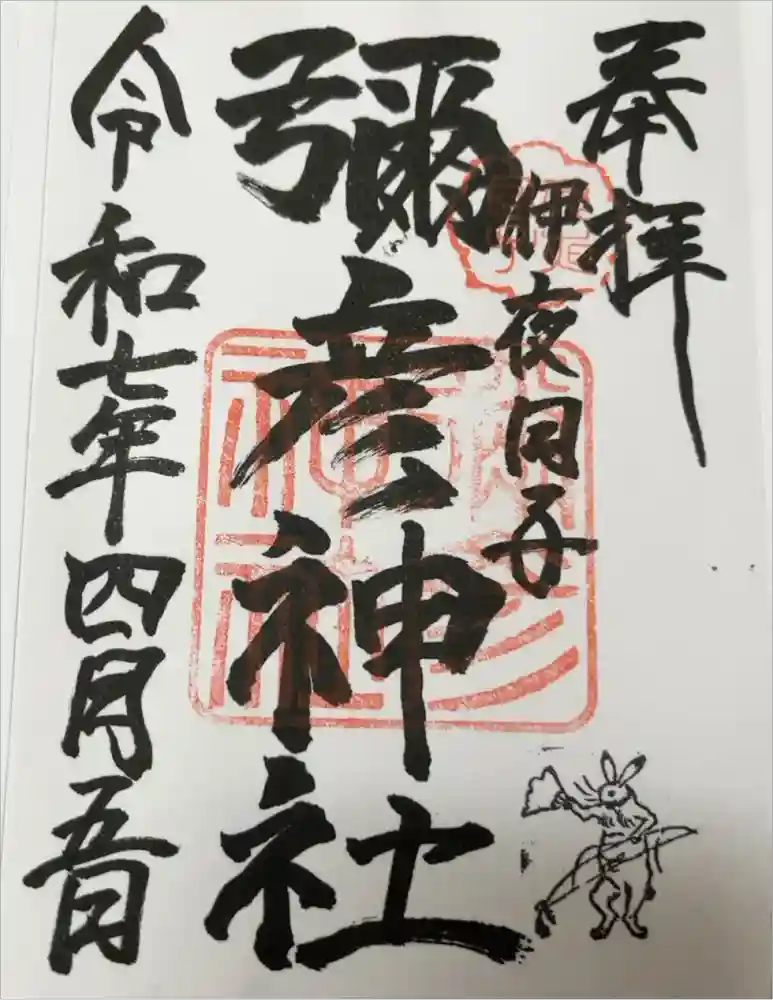 奉拝
伊夜日子
彌彦神社
令和七年四月五日